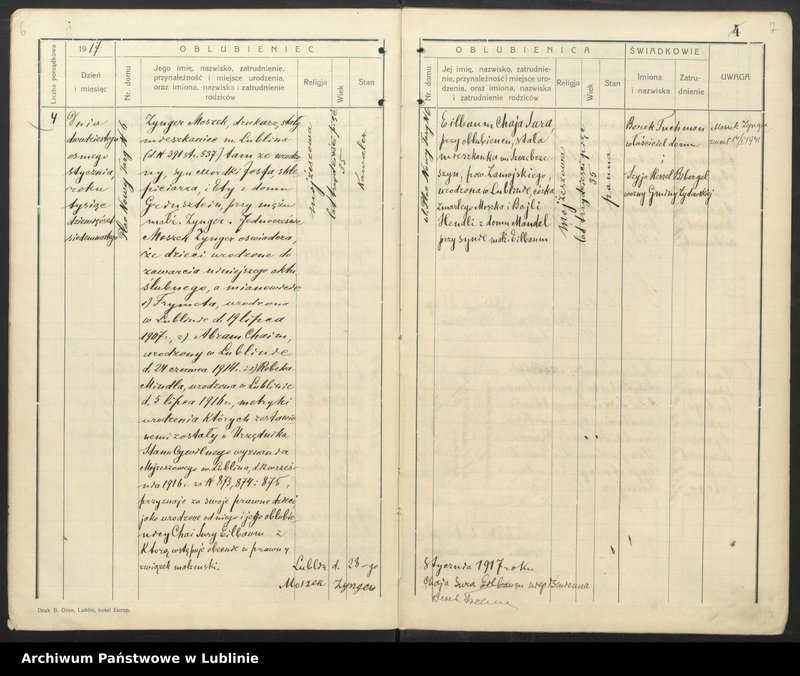 6
4
7
1917
OBLUBIENIEC
Liczba porządkowa
Dzień
i miesiąc
Nr. domu
Jego imię, nazwisko, zatrudnienie,
przynależność i miejsce urodzenia,
oraz imiona, nazwiska i zatrudnienie
rodziców
Religja
Wiek
Stan
4
Dnia
dwudziestego
ósmego
stycznia,
roku
tysiąc
dziewięćset
siedemnastego
Plac Nowy Targ N 6
Zynger Moszek, drukarz, stały
mieszkaniec m. Lublina
(d. N 391 st. 557) tamże urodzo
ny, syn Mordki Josfa, skle
piciarza, i Ety z domu
przy mężu
małż. Zynger. Jednocześnie
Moszek Zynger oświadcza,
że dzieci urodzone do
zawarcia niniejszego aktu
ślubnego, a mianowicie
1) Frymeta, urodzona
w Lublinie d. 19 lipca
1907 r., 2) Abram Chaim,
urodzony w Lublinie
d. 24 czerwca 1914 r. i 3) Rebeka
Mindla, urodzona w Lublinie
d. 5 lipca 1916 r., metryki
urodzenia których zestawio
nemi zostały u Urzędnika
Stanu Cywilnego wyznania
Mojżeszowego m. Lublina, d. 12 wrześ-
nia 1916 r. za N 873, 874 i 875,
przyznaje za swoje prawne dzieci,
jako urodzone od niego i jego oblubie
nicy Chai Sury Eilbaum z
którą wstępuje obecnie w prawny
związek małżeński.
mojżeszowa
lat trzydzieści pięć
35
kawaler
Lublin d. 28-go
Moszek Zynger
Druk B. Drue, Lublin, hotel Europ.
OBLUBIENICA
Nr. domu
Jej imię, nazwisko, zatrudnie-
nie, przynależność i miejsce uro-
dzenia, oraz imiona, nazwiska
i zatrudnienie rodziców
Religja
Wiek
Stan
ŚWIADKOWIE
Imiona
i nazwiska
Zatru-
dnienie
UWAGA
Plac Nowy Targ N 6
Eilbaum, Chaja Sura,
przy oblubieńcu, stała
mieszkanka m. Szczebrze
szyn, pow. Zamojskiego,
urodzona w Lublinie, córka
zmarłego Moszka i Bajli
Hendli z domu Mandel
przy synie małż. Eilbaum
mojżeszowa
lat trzydzieści pięć
35
panna
Berek Tuchman
właściciel domu
i
Szyja Hersz Bbagel
woźny Gminy Żydowskiej
Stycznia 1917 roku
Chaja Sura Eilbaum
Berek Tuchman
Archiwum Państwowe w Lublinie